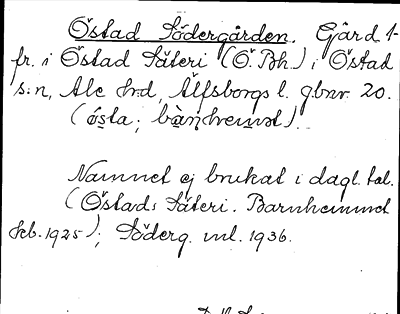 Östad Södergården. Gård 1-
fr. i Östad Säteri (Ö. Bh.) i Östad
s:n, Ale hd, Älfsborgs l. gbnr 20.
(ósta; bà̀ṇheimət).
Namnet ej brukat i dagl. tal.
(Östads Säteri. Barnhemmet
feb. 1925); Söderg. ml. 1936.